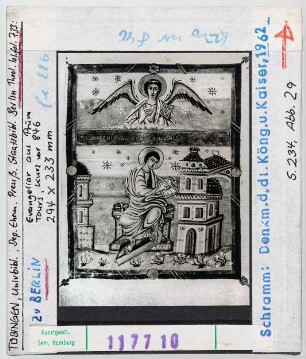 TÜBINGEN, Univbibl. Dep. Ehem. Preuß. Staatsbibl. Berlin Theol. lat. fol. 733:
ZU BERLIN
Evangeliar aus Prüm
Tours, kurz vor 846
294 x 233 mm
Kunstgesch.
Sem. Hamburg
117710
Schramm: Denkm. d. dt. König. u. Kaiser, 1962
S. 234, Abb. 29